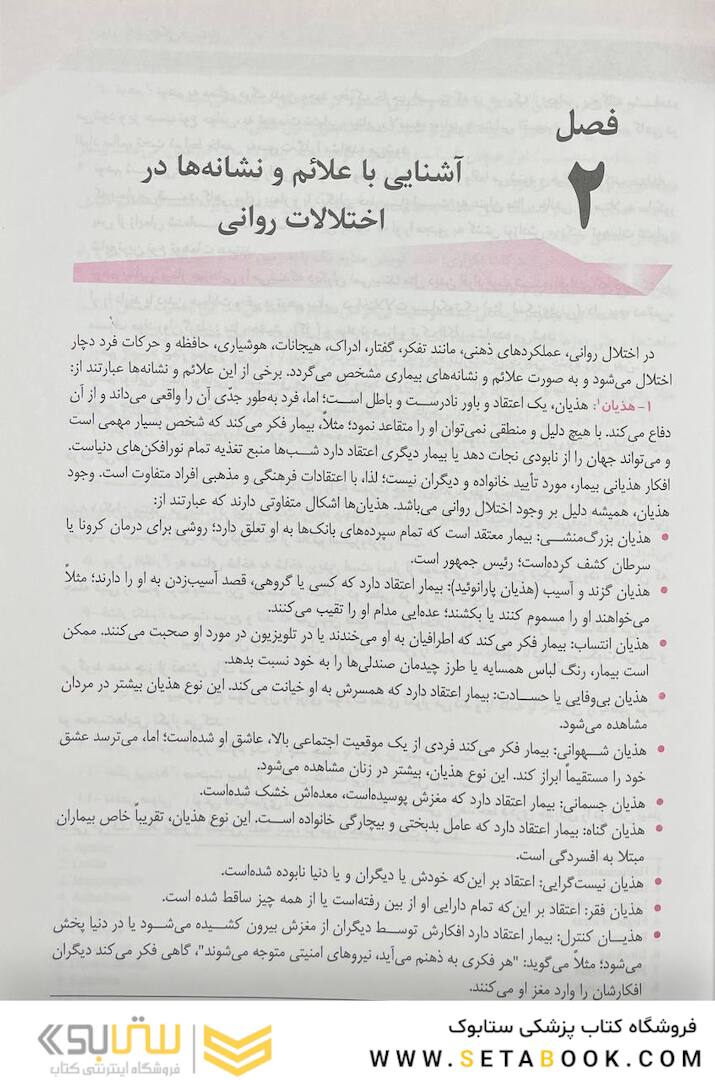 فصل
۲
آشنایی با علائم و نشانه‌ها در
اختلالات روانی
در اختلال روانی، عملکردهای ذهنی، مانند تفکر، گفتار، ادراک، هیجانات، هوشیاری، حافظه و حرکات فرد دچار
اختلال می‌شود و به صورت علائم و نشانه‌های بیماری مشخص می‌گردد. برخی از این علائم و نشانه‌ها عبارتند از:
۱- هذیان۱: هذیان، یک اعتقاد و باور نادرست و باطل است؛ اما، فرد به‌طور جدّی آن را واقعی می‌داند و از آن
دفاع می‌کند. با هیچ دلیل و منطقی نمی‌توان او را متقاعد نمود؛ مثلاً، بیمار فکر می‌کند که شخص بسیار مهمی است
و می‌تواند جهان را از نابودی نجات دهد یا بیمار دیگری اعتقاد دارد شب‌ها منبع تغذیه تمام نورافکن‌های دنیاست.
افکار هذیانی بیمار، مورد تأیید خانواده و دیگران نیست؛ لذا، با اعتقادات فرهنگی و مذهبی افراد متفاوت است. وجود
هذیان، همیشه دلیل بر وجود اختلال روانی می‌باشد. هذیان‌ها اشکال متفاوتی دارند که عبارتند از:
• هذیان بزرگ‌منشی: بیمار معتقد است که تمام سپرده‌های بانک‌ها به او تعلق دارد؛ روشی برای درمان کرونا یا
سرطان کشف کرده‌است؛ رئیس جمهور است.
• هذیان گزند و آسیب (هذیان پارانوئید): بیمار اعتقاد دارد که کسی یا گروهی، قصد آسیب‌زدن به او را دارند؛ مثلاً
می‌خواهند او را مسموم کنند یا بکشند؛ عده‌ایی مدام او را تقیب می‌کنند.
• هذیان انتساب: بیمار فکر می‌کند که اطرافیان به او می‌خندند یا در تلویزیون در مورد او صحبت می‌کنند. ممکن
است بیمار، رنگ لباس همسایه یا طرز چیدمان صندلی‌ها را به خود نسبت بدهد.
• هذیان بی‌وفایی یا حسادت: بیمار اعتقاد دارد که همسرش به او خیانت می‌کند. این نوع هذیان بیشتر در مردان
مشاهده می‌شود.
• هذیان شهوانی: بیمار فکر می‌کند فردی از یک موقعیت اجتماعی بالا، عاشق او شده‌است؛ اما، می‌ترسد عشق
خود را مستقیماً ابراز کند. این نوع هذیان، بیشتر در زنان مشاهده می‌شود.
• هذیان جسمانی: بیمار اعتقاد دارد که مغزش پوسیده‌است، معده‌اش خشک شده‌است.
• هذیان گناه: بیمار اعتقاد دارد که عامل بدبختی و بیچارگی خانواده است. این نوع هذیان، تقریباً خاص بیماران
مبتلا به افسردگی است.
• هذیان نیست‌گرایی: اعتقاد بر این‌که خودش یا دیگران و یا دنیا نابوده شده‌است.
• هذیان فقر: اعتقاد بر این‌که تمام دارایی او از بین رفته‌است یا از همه چیز ساقط شده است.
• هذیان کنترل: بیمار اعتقاد دارد افکارش توسط دیگران از مغزش بیرون کشیده می‌شود یا در دنیا پخش
می‌شود؛ مثلاً می‌گوید: "هر فکری به ذهنم می‌آید، نیروهای امنیتی متوجه می‌شوند"، گاهی فکر می‌کند دیگران
افکارشان را وارد مغز او می‌کنند.
فروشگاه کتاب پزشکی ستابوک
WWW.SETABOOK.COM
ستابوک
فروشگاه اینترنتی کتاب